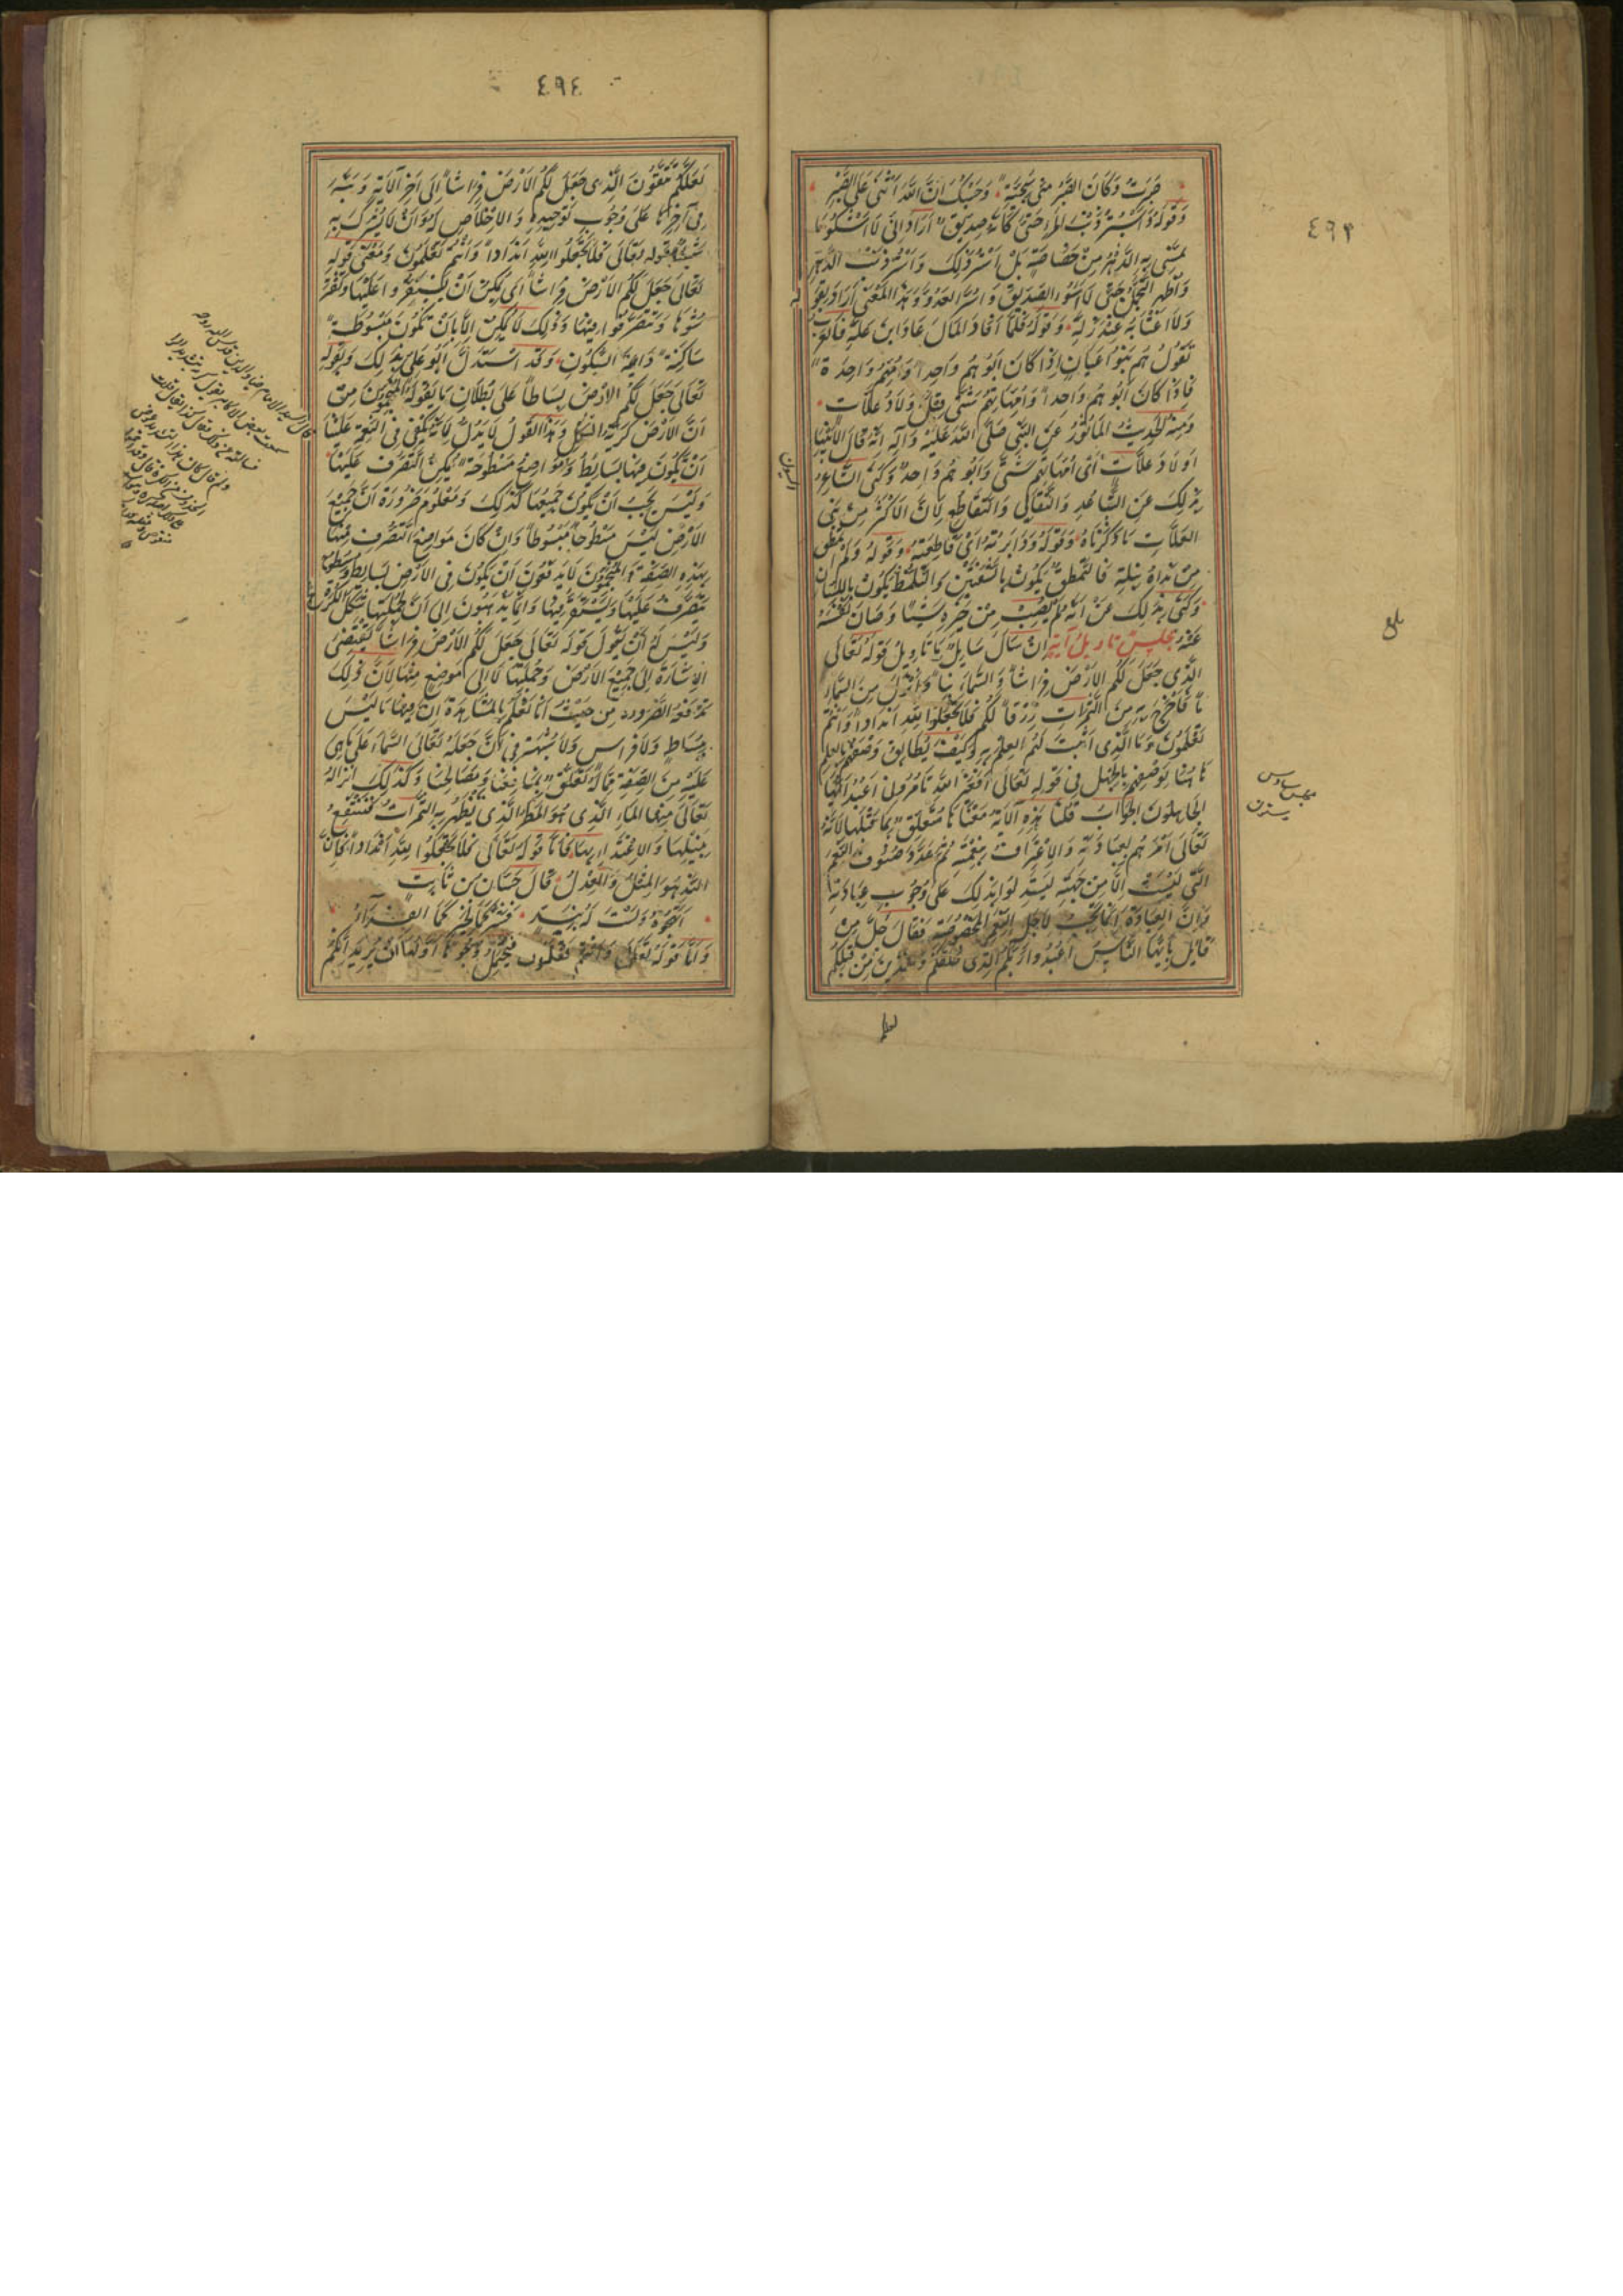 ٤٩٣
صَبَرْتُ وَكَانَ الصَّبْرُ مِنِّى سَجِيَّةً وَحَسْبُكَ اَنَّ اللّٰهَ اَثْنَى عَلَى الصَّبْرِ
وَقَوْلُهُ وَاَسْتُرُ ذَنْبَ الدَّهْرِ حَتَّى كَاَنَّهُ صَدِيقٌ اَرَادَ اِنِّى لَا اَشْكُو مَا
يَمَسُّنِى بِهِ الدَّهْرُ مِنْ خَصَاصَةٍ بَلْ اَسْتُرُ ذٰلِكَ وَاَسْتُرُ ذَنْبَ الدَّهْرِ
وَاُظْهِرُ التَّجَمُّلَ حَتَّى لَا اَسُوءَ الصَّدِيقَ وَاَسُرَّ الْعَدُوَّ وَهٰذَا الْمَعْنَى اَرَادَ بِقَوْلِهِ
وَلَا اَغْتَابُهُ عِنْدَ زَلَّةٍ وَقَوْلُهُ فَلَمَّا اَفَادَ الْمَالَ عَادَ ابْنَ عَلَّةٍ فَالْعَرَبُ
تَقُولُ هُمْ بَنُو اَعْيَانٍ اِذَا كَانَ اَبُوهُمْ وَاحِداً وَاُمُّهُمْ وَاحِدَةً
فَاِذَا كَانَ اَبُوهُمْ وَاحِداً وَاُمَّهَاتُهُمْ شَتَّى فَقُلْ اَوْلَادُ عَلَّاتٍ
وَمِنْهُ الْحَدِيثُ الْمَأْثُورُ عَنِ النَّبِىِّ صَلَّى اللّٰهُ عَلَيْهِ وَآلِهِ اَنَّهُ قَالَ الْاَنْبِيَاءُ
اَوْلَادُ عَلَّاتٍ اَىْ اُمَّهَاتُهُمْ شَتَّى وَاَبُوهُمْ وَاحِدٌ وَكَنَى الشَّاعِرُ
بِذٰلِكَ عَنِ التَّبَاعُدِ وَالتَّقَالِى وَالتَّقَاطُعِ لِاَنَّ الْاَكْثَرَ مِنْ بَنِى
الْعَلَّاتِ مَا ذَكَرْنَاهُ وَقَوْلُهُ وَدَابَرْتُهُ اَىْ قَاطَعْتُهُ وَقَوْلُهُ وَلَمْ اَتَمَطَّقْ
مِنْ نَدَاهُ بِبِلَّةٍ فَالتَّمَطُّقُ يَكُونُ بِالشَّفَتَيْنِ وَالتَّلَمُّظُ يَكُونُ بِاللِّسَانِ
وَكَنَى بِذٰلِكَ عَنْ اَنَّهُ لَمْ يُصِبْ مِنْ خَيْرِهِ شَيْئاً وَصَانَ نَفْسَهُ
عَنْهُ مجلس تاويل آية اِنْ سَاَلَ سَايِلٌ مَا تَاْوِيلُ قَوْلِهِ تَعَالَى
الَّذِى جَعَلَ لَكُمُ الْاَرْضَ فِرَاشاً وَالسَّمَاءَ بِنَاءً وَاَنْزَلَ مِنَ السَّمَاءِ
مَاءً فَاَخْرَجَ بِهِ مِنَ الثَّمَرَاتِ رِزْقاً لَكُمْ فَلَا تَجْعَلُوا لِلّٰهِ اَنْدَاداً وَاَنْتُمْ
تَعْلَمُونَ وَمَا الَّذِى اَثْبَتَ لَهُمُ الْعِلْمَ بِهِ وَكَيْفَ يُطَابِقُ وَصْفُهُمْ بِالْعِلْمِ
هَاهُنَا بِوَصْفِهِمْ بِالْجَهْلِ فِى قَوْلِهِ تَعَالَى اَفَغَيْرَ اللّٰهِ تَاْمُرُونِّى اَعْبُدُ اَيُّهَا
الْجَاهِلُونَ الْجَوَابُ قُلْنَا هٰذِهِ الْآيَةُ مَعْنَاهَا مُتَعَلِّقٌ بِمَا قَبْلَهَا لِاَنَّهُ
تَعَالَى اَمَرَهُمْ بِعِبَادَتِهِ وَالْاِعْتِرَافِ بِنِعْمَتِهِ ثُمَّ عَدَّدَ صُنُوفَ النِّعَمِ
الَّتِى لَيْسَتْ اِلَّا مِنْ جِهَتِهِ لِيَسْتَدِلُّوا بِذٰلِكَ عَلَى وُجُوبِ عِبَادَتِهِ
وَاَنَّ الْعِبَادَةَ اِنَّمَا تَجِبُ لِاَجْلِ النِّعَمِ الْمَخْصُوصَةِ فَقَالَ جَلَّ مِنْ
قَائِلٍ يَا اَيُّهَا النَّاسُ اعْبُدُوا رَبَّكُمُ الَّذِى خَلَقَكُمْ وَالَّذِينَ مِنْ قَبْلِكُمْ
لعلكم
بلغ
مجلس سادس
٤٩٤
لَعَلَّكُمْ تَتَّقُونَ الَّذِى جَعَلَ لَكُمُ الْاَرْضَ فِرَاشاً اِلَى آخِرِ الْآيَةِ وَنَبَّهَ
فِى آخِرِهَا عَلَى وُجُوبِ تَوْحِيدِهِ وَالْاِخْلَاصِ لَهُ وَاَنْ لَا يُشْرَكَ بِهِ
شَيْئاً بِقَوْلِهِ تَعَالَى فَلَا تَجْعَلُوا لِلّٰهِ اَنْدَاداً وَاَنْتُمْ تَعْلَمُونَ وَمَعْنَى قَوْلِهِ
تَعَالَى جَعَلَ لَكُمُ الْاَرْضَ فِرَاشاً اَىْ يُمْكِنُ اَنْ تَسْتَقِرُّوا عَلَيْهَا وَتَفْتَرِ
شُوهَا وَتَتَصَرَّفُوا فِيهَا وَذٰلِكَ لَا يُمْكِنُ اِلَّا بِاَنْ تَكُونَ مَبْسُوطَةً
سَاكِنَةً دَايِمَةَ السُّكُونِ وَقَدِ اسْتَدَلَّ اَبُو عَلِىٍّ بِذٰلِكَ وَبِقَوْلِهِ
تَعَالَى جَعَلَ لَكُمُ الْاَرْضَ بِسَاطاً عَلَى بُطْلَانِ مَا يَقُولُهُ الْمُنَجِّمُونَ مِنْ
اَنَّ الْاَرْضَ كُرِيَّةُ الشَّكْلِ وَهٰذَا الْقَوْلُ لَا يَدُلُّ لِاَنَّهُ يَكْفِى فِى النِّعْمَةِ عَلَيْنَا
اَنْ يَكُونَ فِيهَا بَسَايِطُ وَمَوَاضِعُ مَسْطُوحَةٌ يُمْكِنُ التَّصَرُّفُ عَلَيْهَا
وَلَيْسَ يَجِبُ اَنْ يَكُونَ جَمِيعُهَا كَذٰلِكَ وَمَعْلُومٌ ضَرُورَةً اَنَّ جَمِيعَ
الْاَرْضِ لَيْسَ مَسْطُوحاً مَبْسُوطاً وَاِنْ كَانَ مَوَاضِعُ التَّصَرُّفِ مِنْهَا
بِهٰذِهِ الصِّفَةِ وَالْمُنَجِّمُونَ لَا يَدْفَعُونَ اَنْ يَكُونَ فِى الْاَرْضِ بَسَايِطُ وَسُطُوحٌ
يُتَصَرَّفُ عَلَيْهَا وَيُسْتَقَرُّ فِيهَا وَاِنَّمَا يَذْهَبُونَ اِلَى اَنَّ لِجُمْلَتِهَا شَكْلَ الْكُرَةِ
وَلَيْسَ لَهُ اَنْ يَقُولَ قَوْلُهُ تَعَالَى جَعَلَ لَكُمُ الْاَرْضَ فِرَاشاً يَقْتَضِى
الْاِشَارَةَ اِلَى جَمِيعِ الْاَرْضِ وَجُمْلَتِهَا لَا اِلَى مَوَاضِعَ مِنْهَا لِاَنَّ ذٰلِكَ
تَدْفَعُهُ الضَّرُورَةُ مِنْ حَيْثُ اَنَّا نَعْلَمُ بِالْمُشَاهَدَةِ اَنَّ فِيهَا مَا لَيْسَ
بِبِسَاطٍ وَلَا فِرَاشٍ وَلَا شُبْهَةَ فِى اَنَّ جَعْلَهُ تَعَالَى السَّمَاءَ عَلَى مَا هِىَ
عَلَيْهِ مِنَ الصِّفَةِ مِمَّا لَهُ تَعَلُّقٌ بِمَنَافِعِنَا وَمَصَالِحِنَا وَكَذٰلِكَ اِنْزَالُهُ
تَعَالَى مِنْهَا الْمَاءَ الَّذِى هُوَ الْمَطَرُ الَّذِى يَظْهَرُ بِهِ الثَّمَرَاتُ فَنَنْتَفِعُ
بِنَيْلِهَا وَالْاِغْتِذَاءِ بِهَا فَاَمَّا قَوْلُهُ تَعَالَى فَلَا تَجْعَلُوا لِلّٰهِ اَنْدَاداً فَاِنَّ
النِّدَّ هُوَ الْمِثْلُ وَالْعِدْلُ قَالَ حَسَّانُ بْنُ ثَابِتٍ
اَتَهْجُوهُ وَلَسْتَ لَهُ بِنِدٍّ فَشَرُّكُمَا لِخَيْرِكُمَا الْفِدَاءُ
وَاَمَّا قَوْلُهُ تَعَالَى وَاَنْتُمْ تَعْلَمُونَ فَيَحْتَمِلُ وُجُوهاً اَوَّلُهَا اَنْ يُرِيدَ اَنَّكُمْ